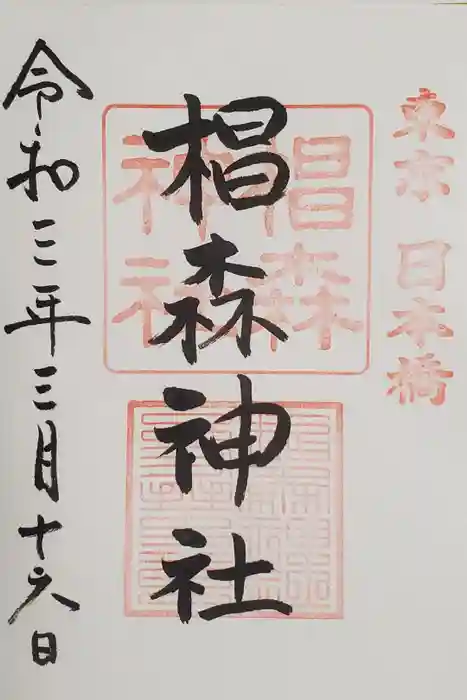 東京 日本橋
椙森神社
椙森神社
令和三年三月十六日